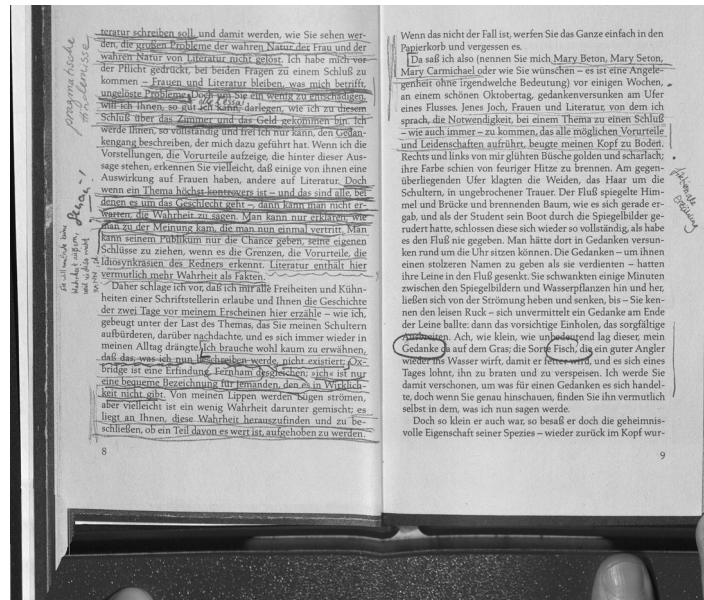 teratur schreiben soll, und damit werden, wie Sie sehen wer-
den, die großen Probleme der wahren Natur der Frau und der
wahren Natur von Literatur nicht gelöst. Ich habe mich vor
der Pflicht gedrückt, bei beiden Fragen zu einem Schluß zu
kommen – Frauen und Literatur bleiben, was mich betrifft,
ungelöste Probleme. Doch um Sie ein wenig zu entschädigen,
will ich Ihnen, so gut ich kann, darlegen, wie ich zu diesem
Schluß über das Zimmer und das Geld gekommen bin. Ich
werde Ihnen, so vollständig und frei ich nur kann, den Gedan-
kengang beschreiben, der mich dazu geführt hat. Wenn ich die
Vorstellungen, die Vorurteile aufzeige, die hinter dieser Aus-
sage stehen, erkennen Sie vielleicht, daß einige von ihnen eine
Auswirkung auf Frauen haben, andere auf Literatur. Doch
wenn ein Thema höchst kontrovers ist – und das sind alle, bei
denen es um das Geschlecht geht –, dann kann man nicht er-
warten, die Wahrheit zu sagen. Man kann nur erklären, wie
man zu der Meinung kam, die man nun einmal vertritt. Man
kann seinem Publikum nur die Chance geben, seine eigenen
Schlüsse zu ziehen, wenn es die Grenzen, die Vorurteile, die
Idiosynkrasien des Redners erkennt. Literatur enthält hier
vermutlich mehr Wahrheit als Fakten.
Daher schlage ich vor, daß ich mir alle Freiheiten und Kühn-
heiten einer Schriftstellerin erlaube und Ihnen die Geschichte
der zwei Tage vor meinem Erscheinen hier erzähle – wie ich,
gebeugt unter der Last des Themas, das Sie meinen Schultern
aufbürderen, darüber nachdachte, und es sich immer wieder in
meinen Alltag drängte. Ich brauche wohl kaum zu erwähnen,
daß das, was ich nun beschreiben werde, nicht existiert; Ox-
bridge ist eine Erfindung, Fernham desgleichen; »ich« ist nur
eine bequeme Bezeichnung für jemanden, den es in Wirklich-
keit nicht gibt. Von meinen Lippen werden Lügen strömen,
aber vielleicht ist ein wenig Wahrheit darunter gemischt; es
liegt an Ihnen, diese Wahrheit herauszufinden und zu be-
schließen, ob ein Teil davon es wert ist, aufgehoben zu werden.
8
pragmatische
Genau!
Wenn das nicht der Fall ist, werfen Sie das Ganze einfach in den
Papierkorb und vergessen es.
Da saß ich also (nennen Sie mich Mary Beton, Mary Seton,
Mary Carmichael oder wie Sie wünschen – es ist eine Angele-
genheit ohne irgendwelche Bedeutung) vor einigen Wochen,
an einem schönen Oktobertag, gedankenversunken am Ufer
eines Flusses. Jenes Joch, Frauen und Literatur, von dem ich
sprach, die Notwendigkeit, bei einem Thema zu einen Schluß
– wie auch immer – zu kommen, das alle möglichen Vorurteile
und Leidenschaften aufrührt, beugte meinen Kopf zu Boden.
Rechts und links von mir glühten Büsche golden und scharlach;
ihre Farbe schien von feuriger Hitze zu brennen. Am gegen-
überliegenden Ufer klagten die Weiden, das Haar um die
Schultern, in ungebrochener Trauer. Der Fluß spiegelte Him-
mel und Brücke und brennenden Baum, wie es sich gerade er-
gab, und als der Student sein Boot durch die Spiegelbilder ge-
rudert hatte, schlossen diese sich wieder so vollständig, als habe
es den Fluß nie gegeben. Man hätte dort in Gedanken versun-
ken rund um die Uhr sitzen können. Die Gedanken – um ihnen
einen stolzeren Namen zu geben als sie verdienten – hatten
ihre Leine in den Fluß gesenkt. Sie schwankten einige Minuten
zwischen den Spiegelbildern und Wasserpflanzen hin und her,
ließen sich von der Strömung heben und senken, bis – Sie ken-
nen den leisen Ruck – sich unvermittelt ein Gedanke am Ende
der Leine ballte: dann das vorsichtige Einholen, das sorgfältige
Ausbreiten. Ach, wie klein, wie unbedeutend lag dieser, mein
Gedanke da auf dem Gras; die Sorte Fisch, die ein guter Angler
wieder ins Wasser wirft, damit er fetter wird, und es sich eines
Tages lohnt, ihn zu braten und zu verspeisen. Ich werde Sie
damit verschonen, um was für einen Gedanken es sich handel-
te, doch wenn Sie genau hinschauen, finden Sie ihn vermutlich
selbst in dem, was ich nun sagen werde.
Doch so klein er auch war, so besaß er doch die geheimnis-
volle Eigenschaft seiner Spezies – wieder zurück im Kopf wur-
9